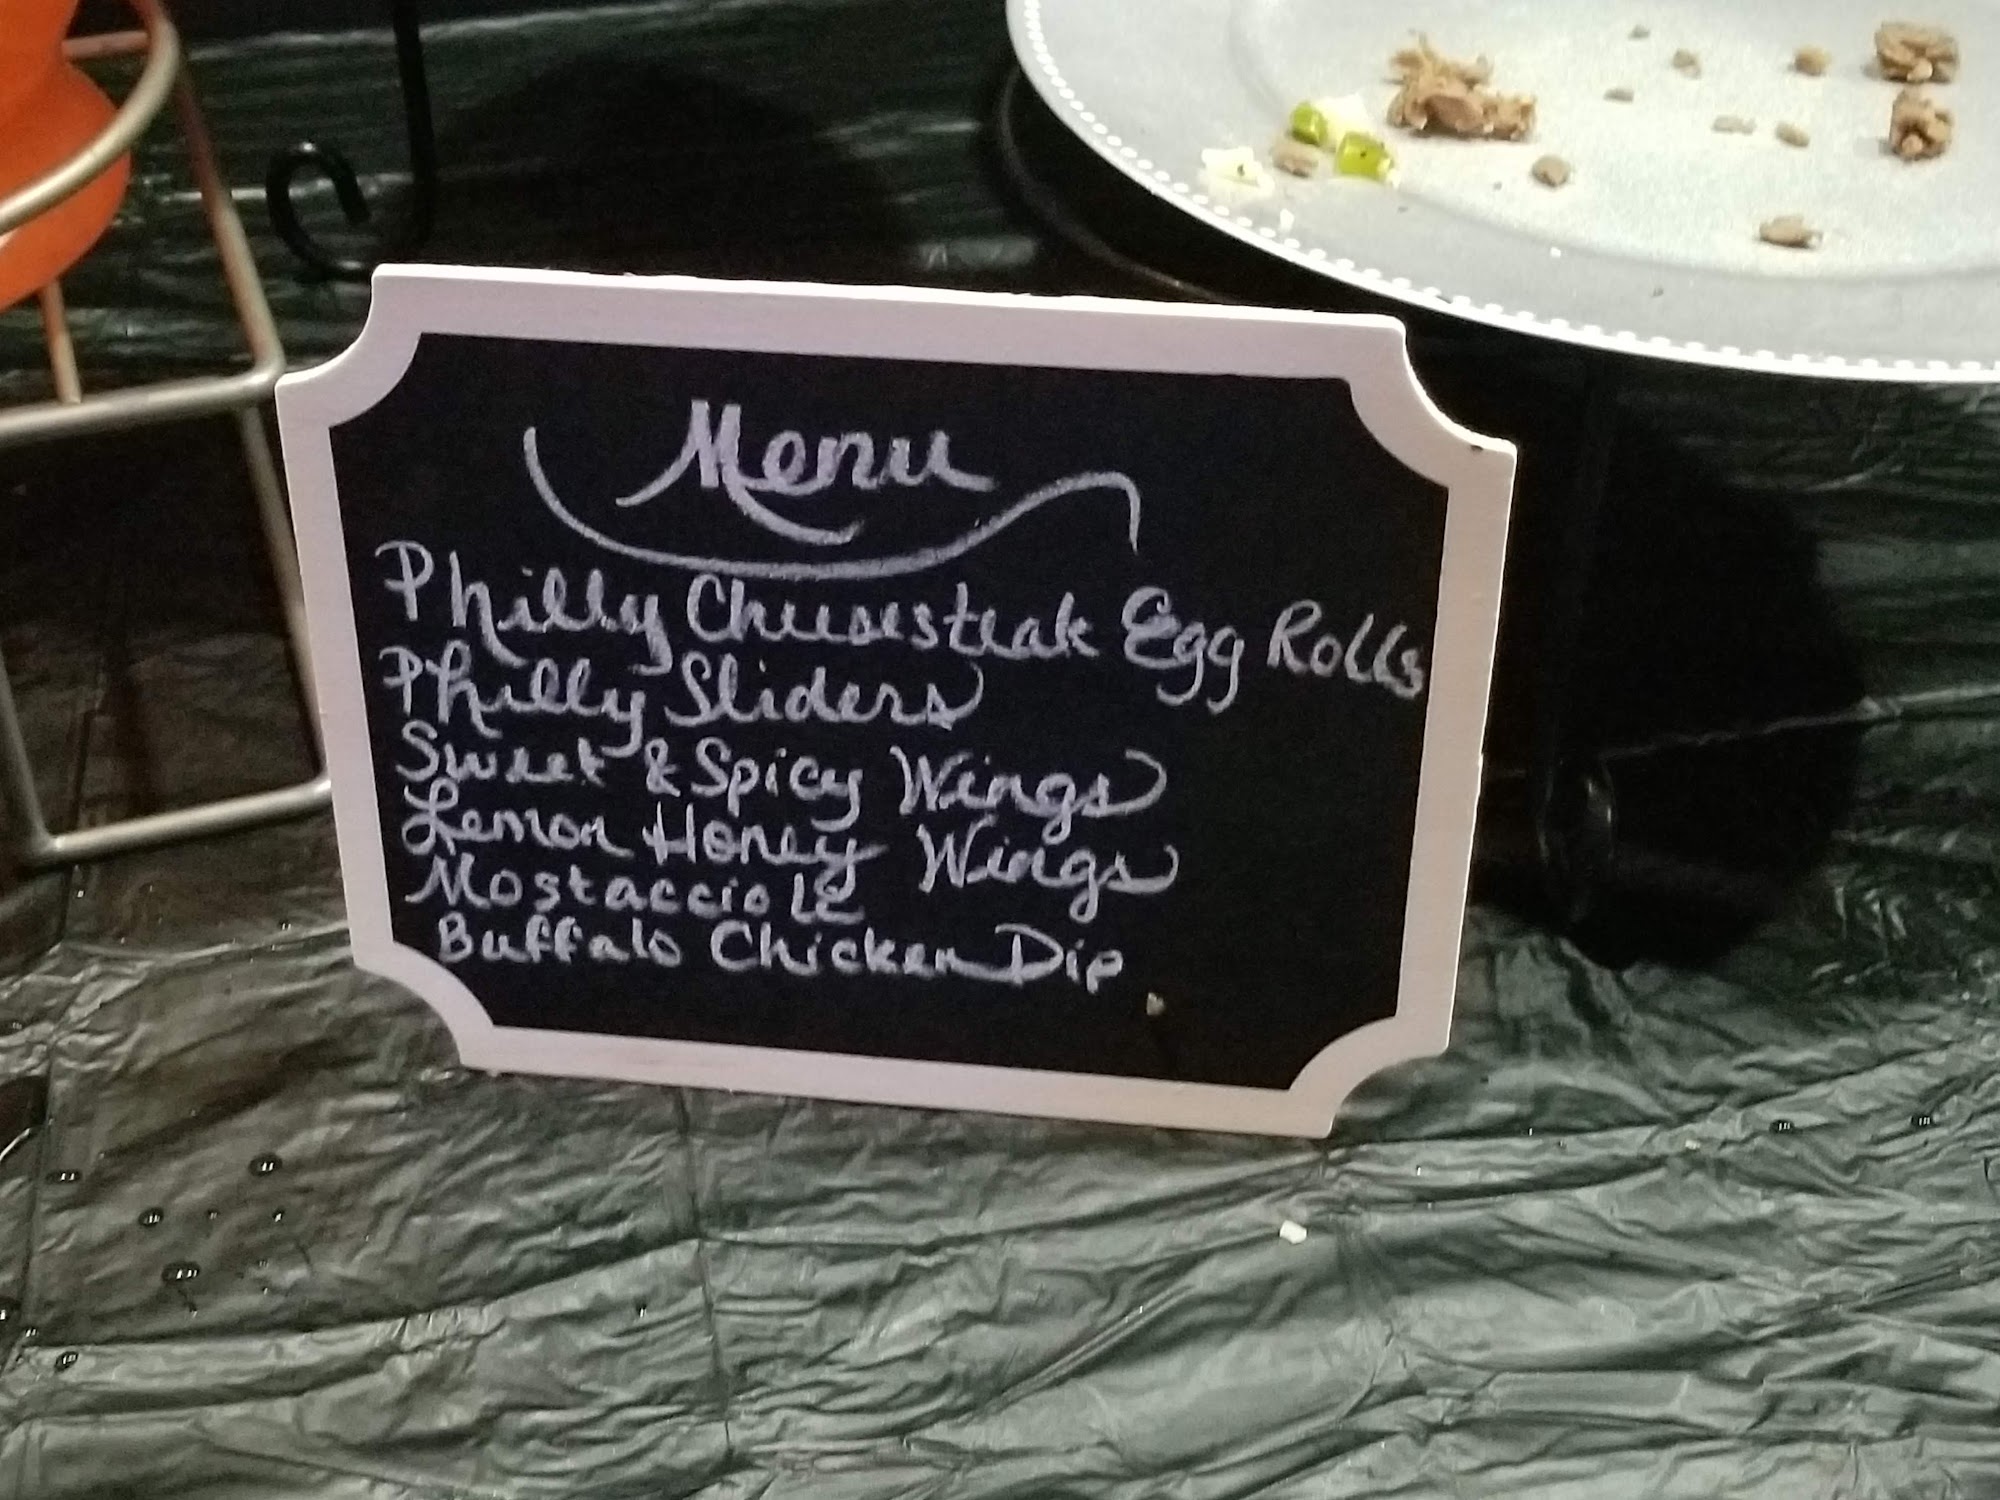 Menu
Philly Cheesesteak Egg Rolls
Philly Sliders
Sweet & Spicy Wings
Lemon Honey Wings
Mostacciole
Buffalo Chicken Dip